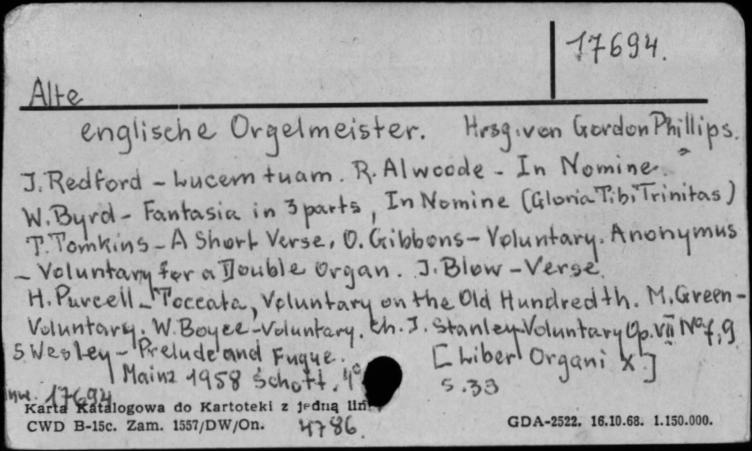 17694.
Alte
englische Orgelmeister. Hrsg. von Gordon Phillips.
J. Redford - Lucem tuam. R. Alwoode - In Nomine.
W. Byrd - Fantasia in 3 parts, In Nomine (Gloria Tibi Trinitas)
T. Tomkins - A Short Verse. O. Gibbons - Voluntary. Anonymus
- Voluntary for a Double Organ. J. Blow - Verse.
H. Purcell - Toccata, Voluntary on the Old Hundredth. M. Green -
Voluntary. W. Boyce - Voluntary. Ch. J. Stanley - Voluntary Op. VII No 1, 9
S Wesley - Prelude and Fugue. [Liber Organi X]
Mainz 1958 Schott. 4° S. 33
inw. 17694
Karta Katalogowa do Kartoteki z jedną
CWD B-15c. Zam. 1557/DW/On. 4786 GDA-2522. 16.10.68. 1.150.000.